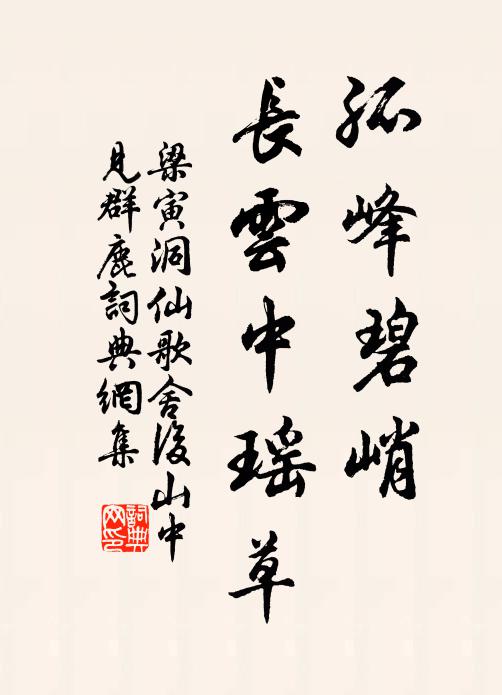 孤峰碧峭
長雲中瑶草
梁寅洞仙歌舍後山中
見群鹿詞典網集
詞典
网印